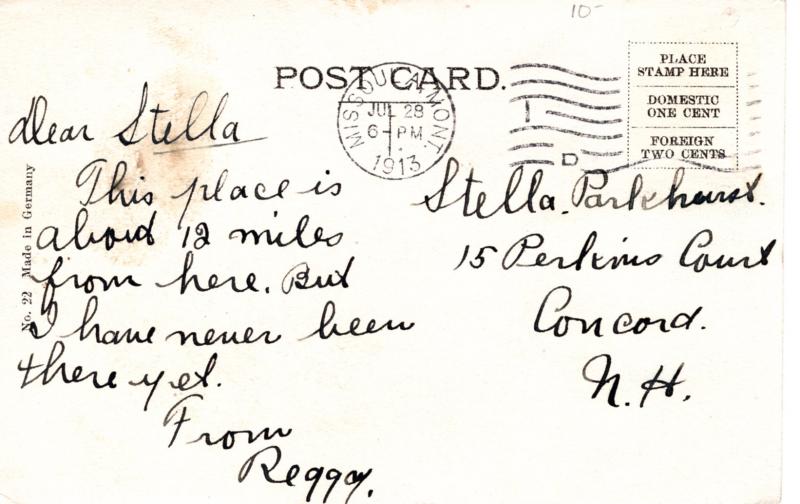 10-
POST CARD.
MISSOULA, MONT.
JUL 28
6-PM
1913
D
PLACE
STAMP HERE
DOMESTIC
ONE CENT
FOREIGN
TWO CENTS
No. 22 Made in Germany
Dear Stella
This place is
about 12 miles
from here. But
I have never been
there yet.
From
Reggy.
Stella Parkhurst.
15 Perkins Court
Concord.
N.H.